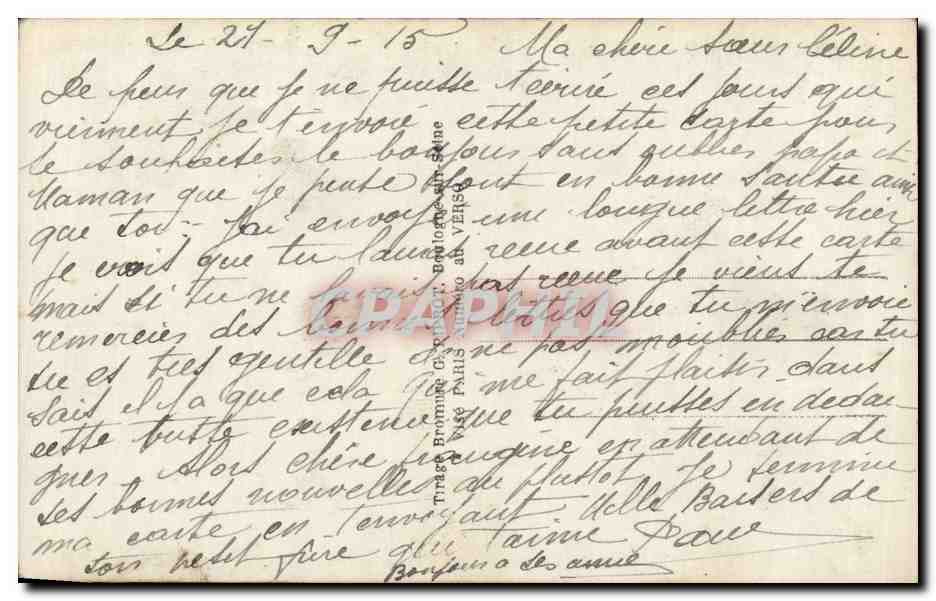 Le 21-9-15 Ma chère sœur Céline
De peur que je ne puisse t'écrire ces jours qui
viennent, je t'envoie cette petite carte pour
te souhaiter le bonjour sans oublier papa et
Maman que je pense sont en bonne santée ainsi
que toi. J'ai envoyé une longue lettre hier
je crois que tu l'auras reçue avant cette carte
mais si tu ne l'avais pas reçue je viens te
remercier des bonnes lettres que tu m'envoie
tu es très gentille de ne pas m'oublier car tu
sais il y a que cela qui me fait plaisir dans
cette triste existence que tu puisses
Alors chère frangine en attendant de
tes bonnes nouvelles au plustot je termine
ma carte en t'envoyant Mille Baisers de
ton petit frère qui t'aime
Bonjour a tes amie
Tirage Bromure G. PIPROT, Boulogne-sur-Seine
Visé PARIS Numéro au VERSO
CPAPHIL